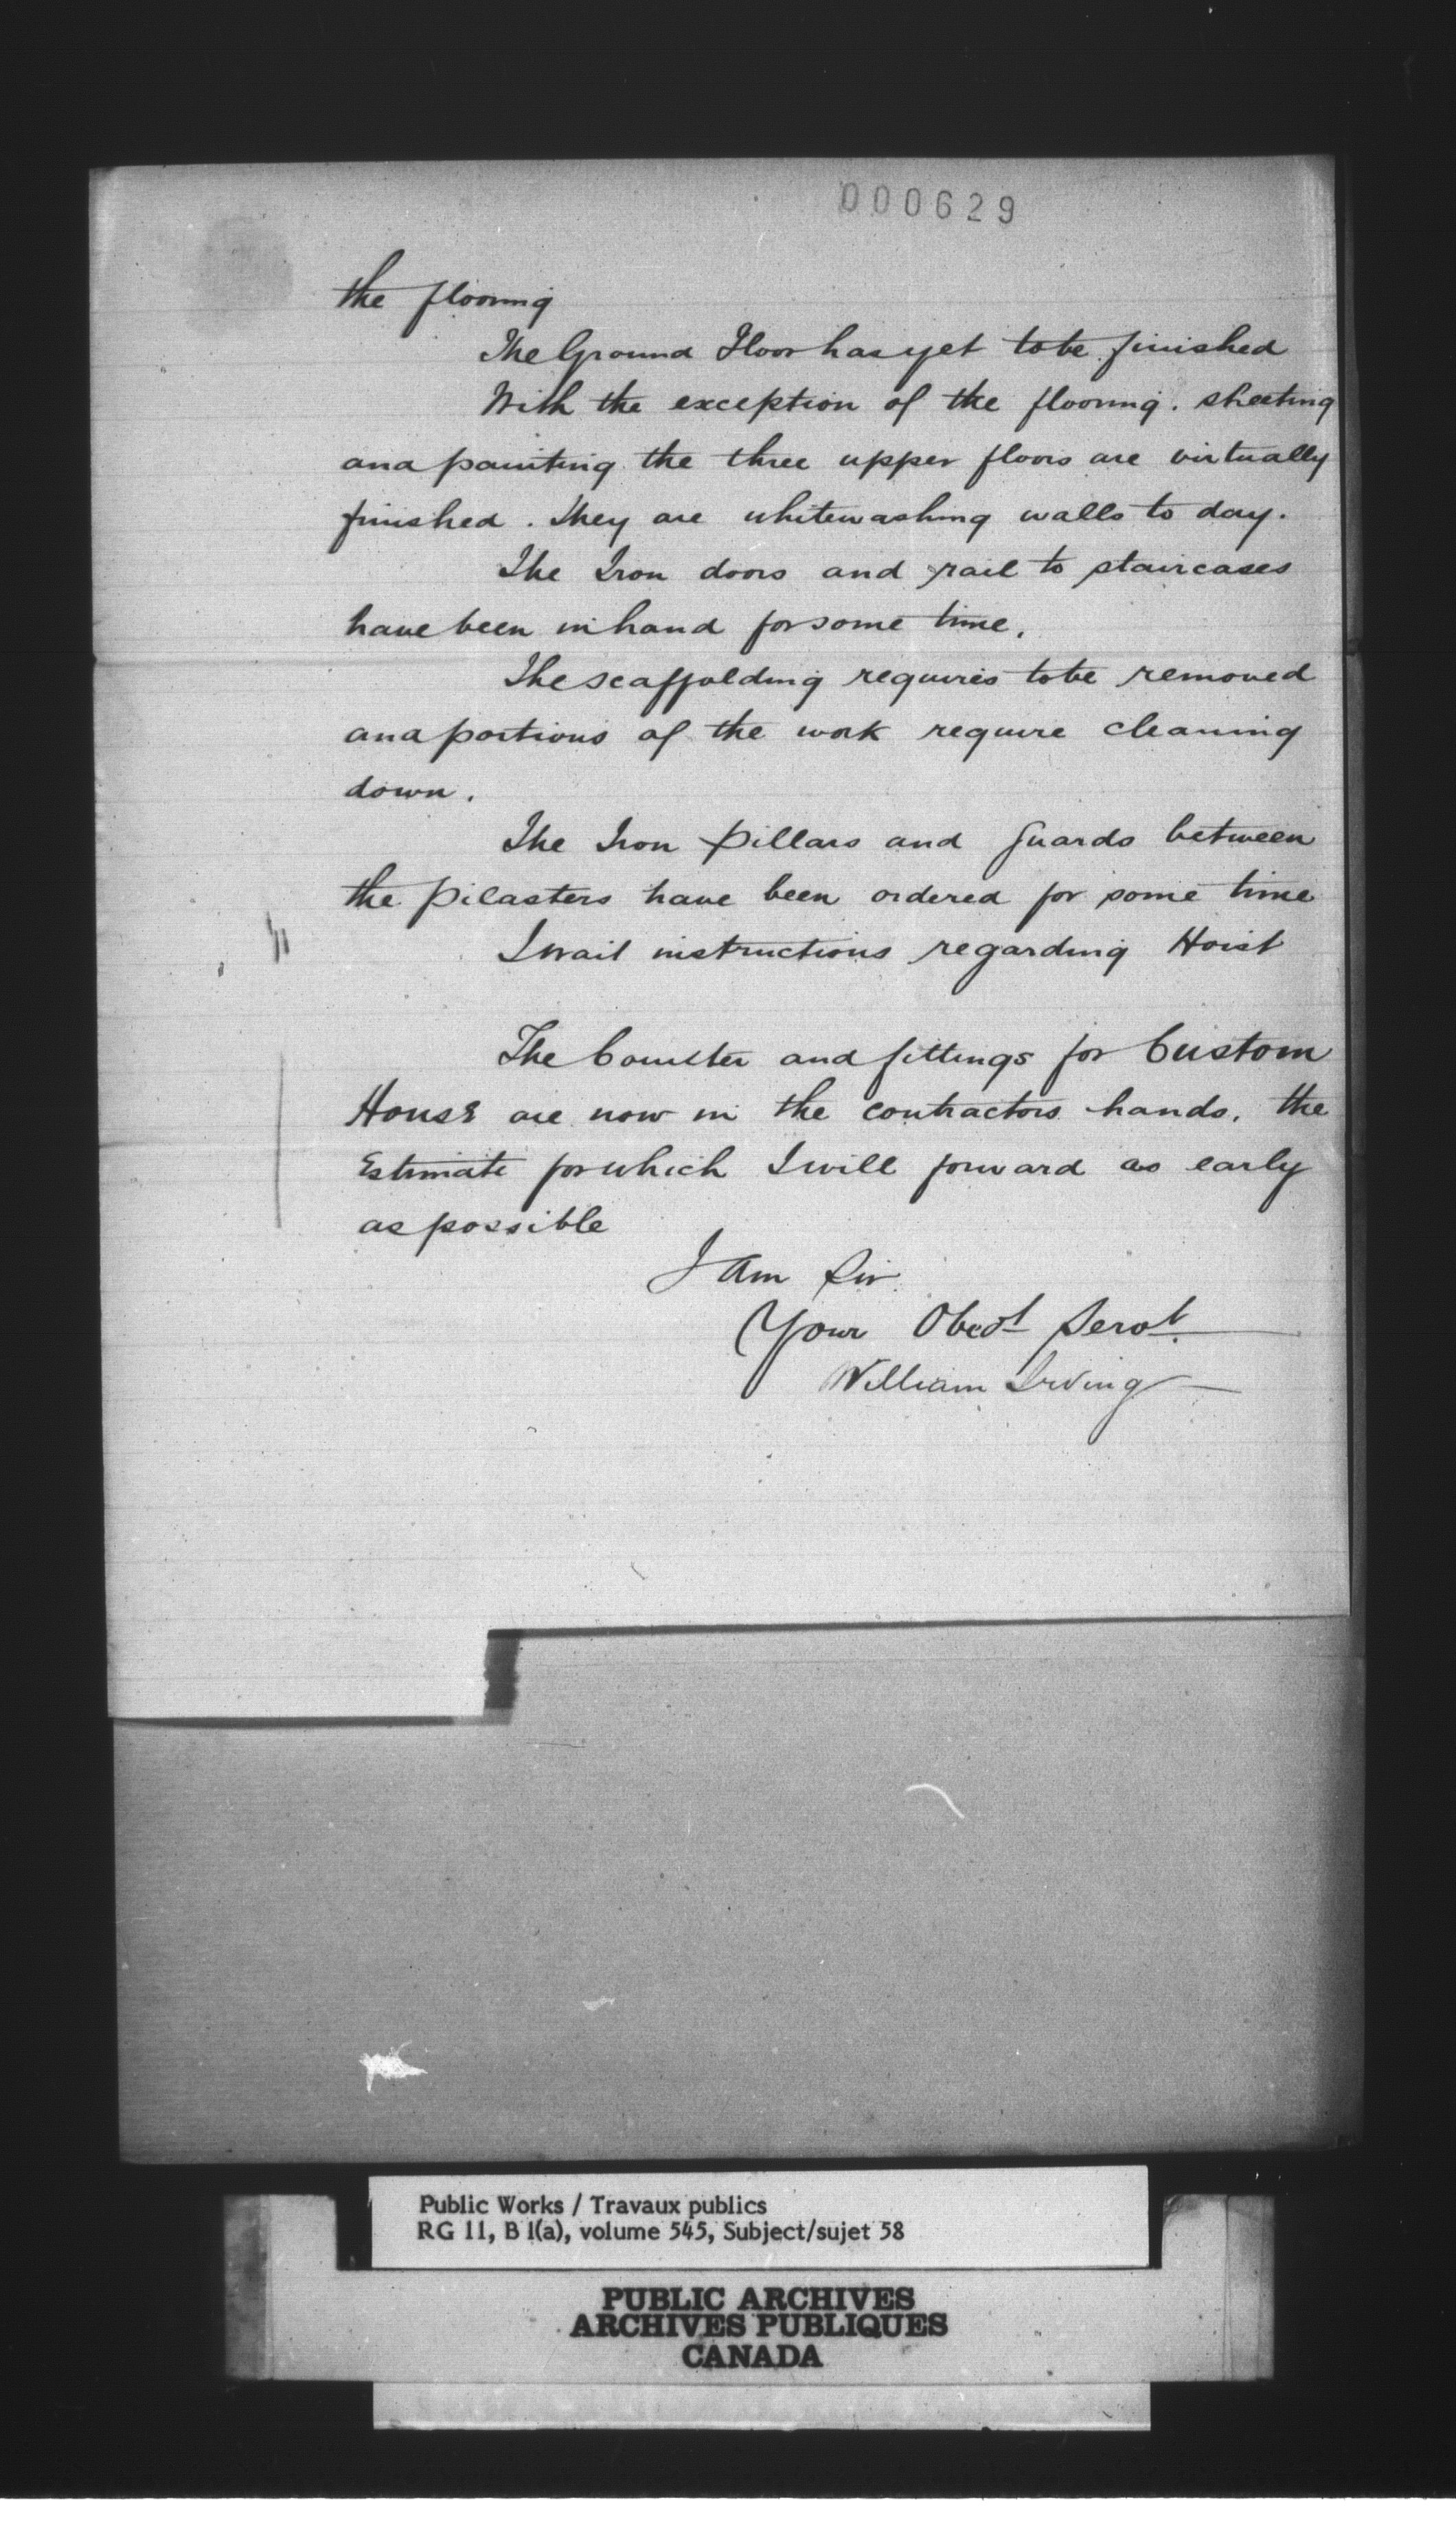 000629
the flooring
The Ground Floor has yet to be finished
With the exception of the flooring. sheeting
and painting the three upper floors are virtually
finished. They are whitewashing walls to day.
The Iron doors and rail to staircases
have been in hand for some time.
The scaffolding requires to be removed
and portions of the work require cleaning
down.
The Iron pillars and guards between
the pilasters have been ordered for some time
I wait instructions regarding Hoist
The Counter and fittings for Custom
House are now in the contractors hands. the
Estimate for which I will forward as early
as possible
I am Sir
Your Obedt Servt.
William Irving
Public Works / Travaux publics
RG 11, B 1(a), volume 545, Subject/sujet 58
PUBLIC ARCHIVES
ARCHIVES PUBLIQUES
CANADA